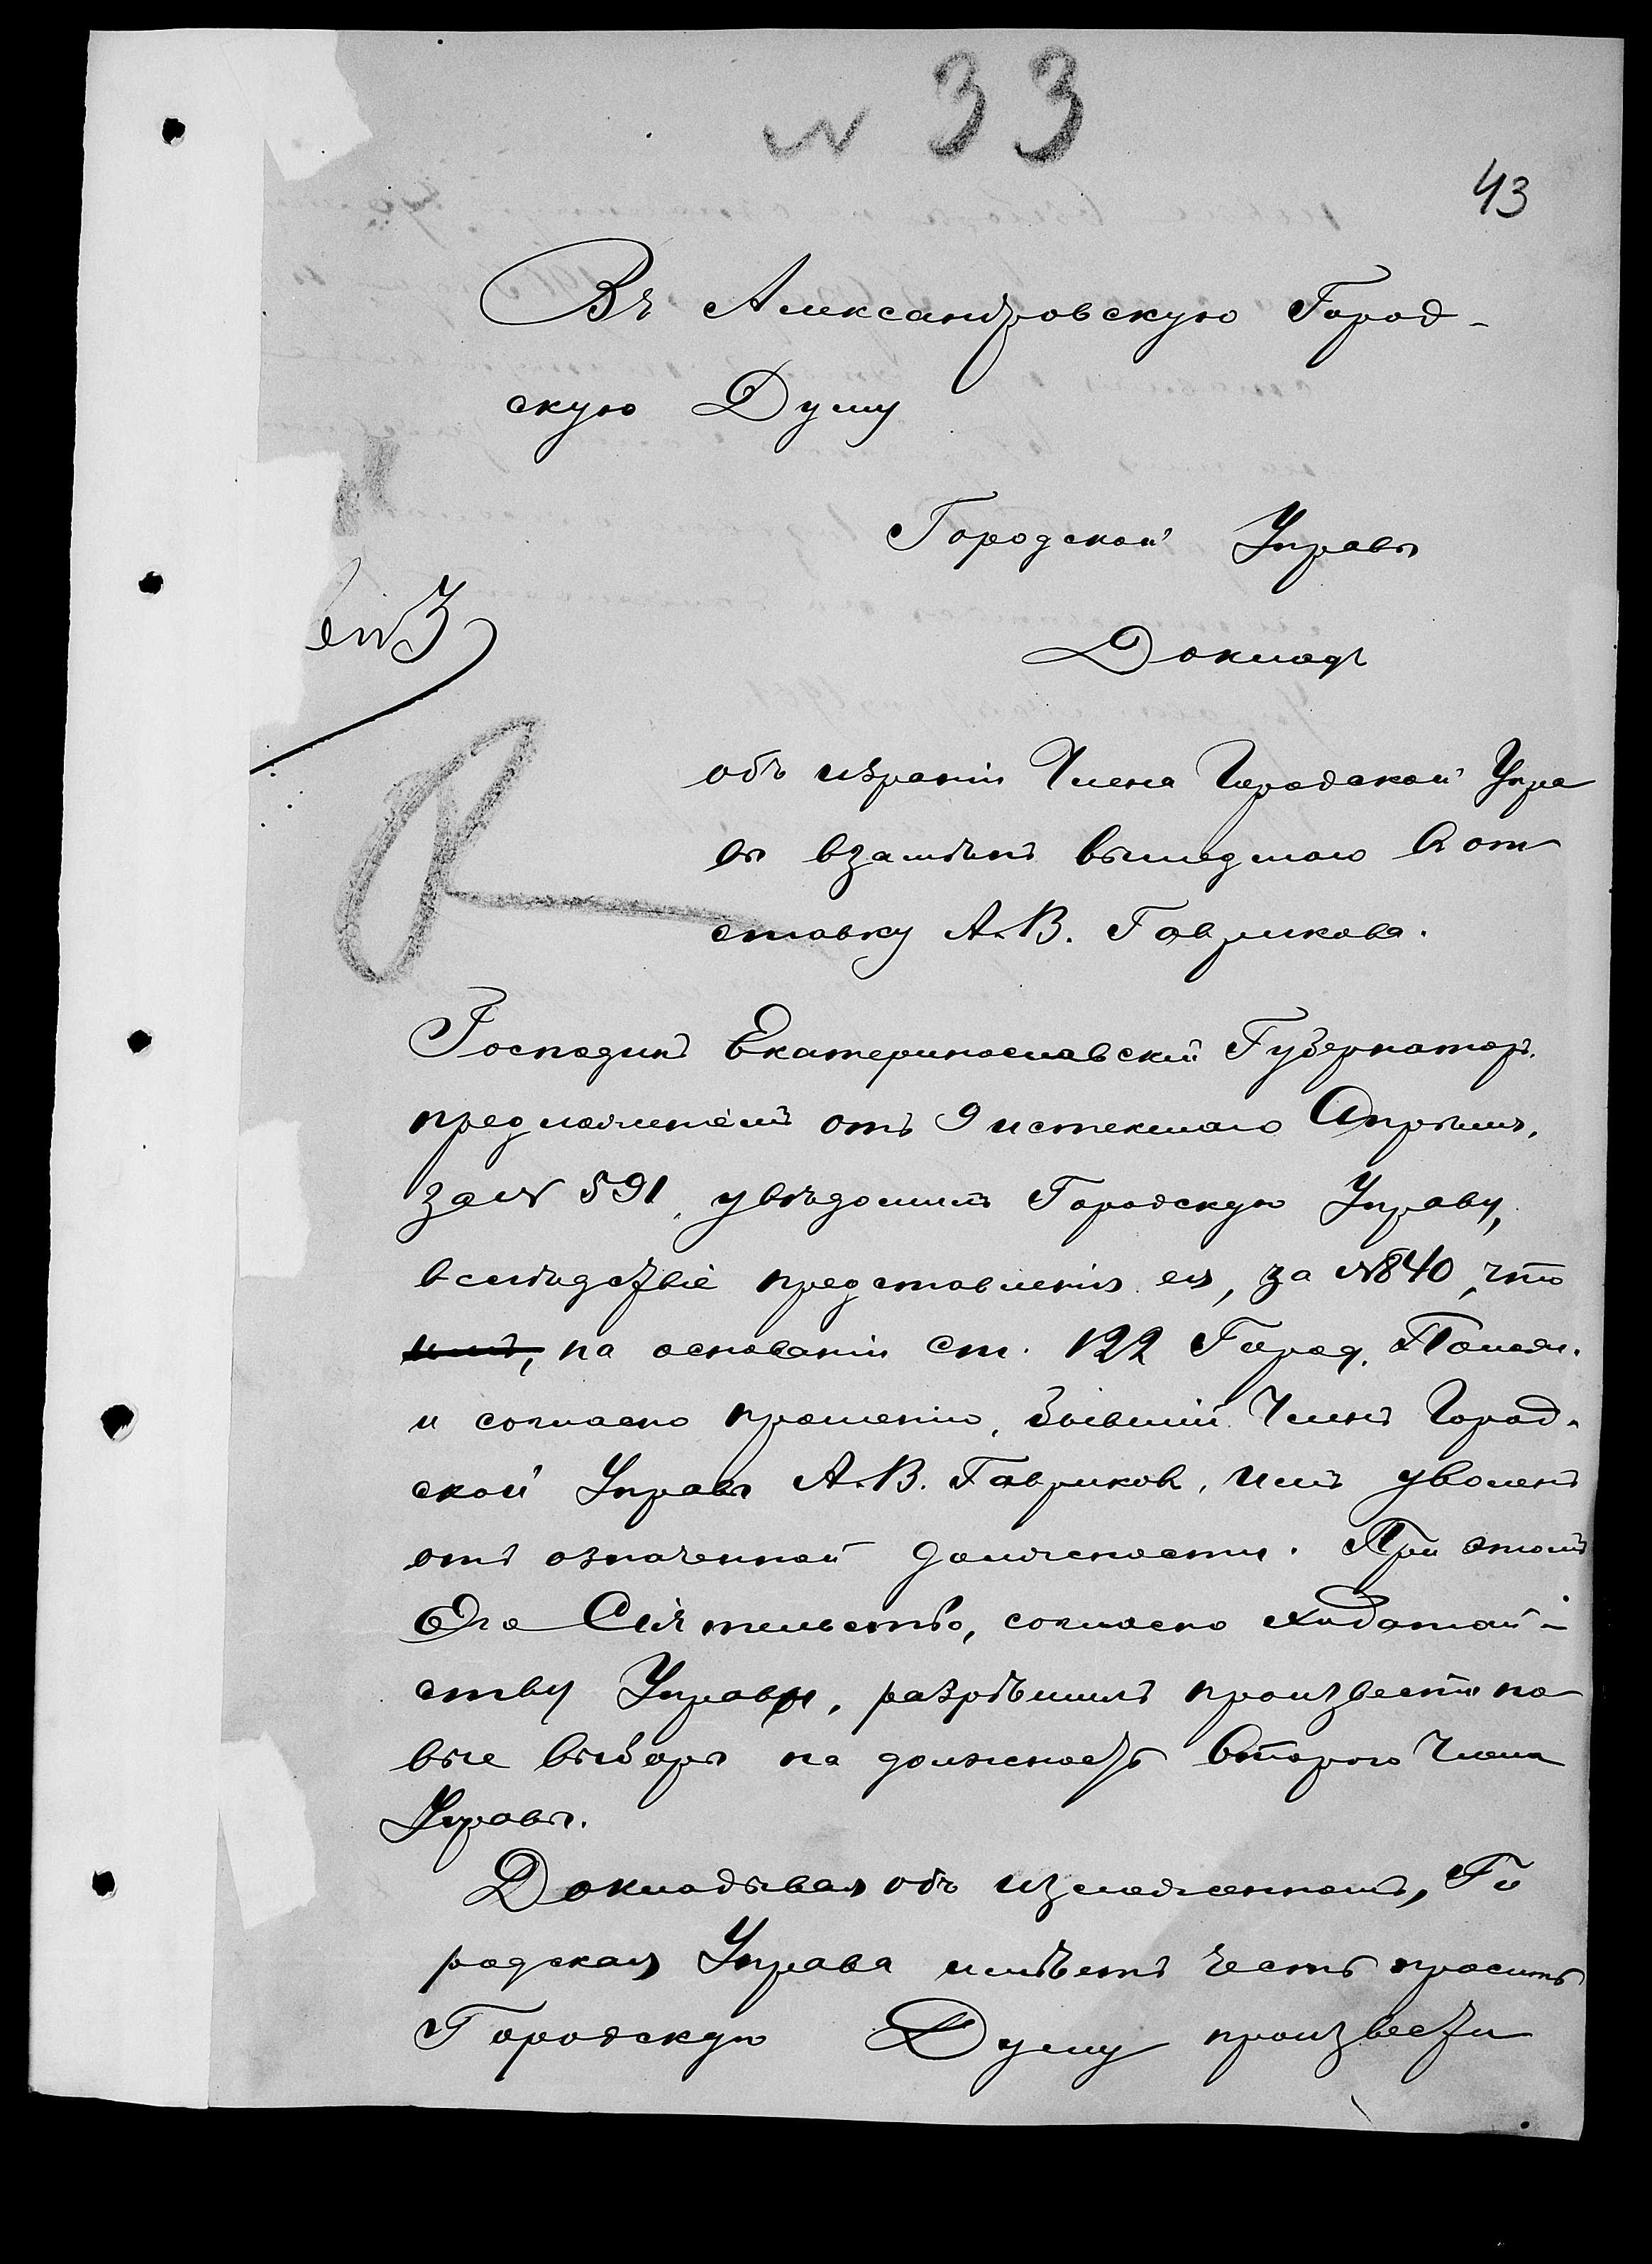 № 33
43
Въ Александровскую Город-
скую Думу
Городской Управы
Докладъ
объ избраніи Члена Городской Упра
вы взамѣнъ вышедшаго въ от
ставку А. В. Гаврикова.
Господинъ Екатеринославскій Губернаторъ
предложеніемъ отъ 9 истекшаго Апрѣля,
за № 591, увѣдомилъ Городскую Управу,
вслѣдствіе представленія ея, за № 840, что
имъ, на основаніи ст. 122 Город. Полож.
и согласно прошенію, бывшій Членъ Город-
ской Управы А. В. Гавриковъ, имъ уволенъ
отъ означенной должности. При этомъ
Его Сіятельство, согласно ходатай-
ству Управы, разрѣшилъ произвести но
вые выборы на должность второго Члена
Управы.
Докладывая объ изложенномъ, Го
родская Управа имѣетъ честь просить
Городскую Думу произвести